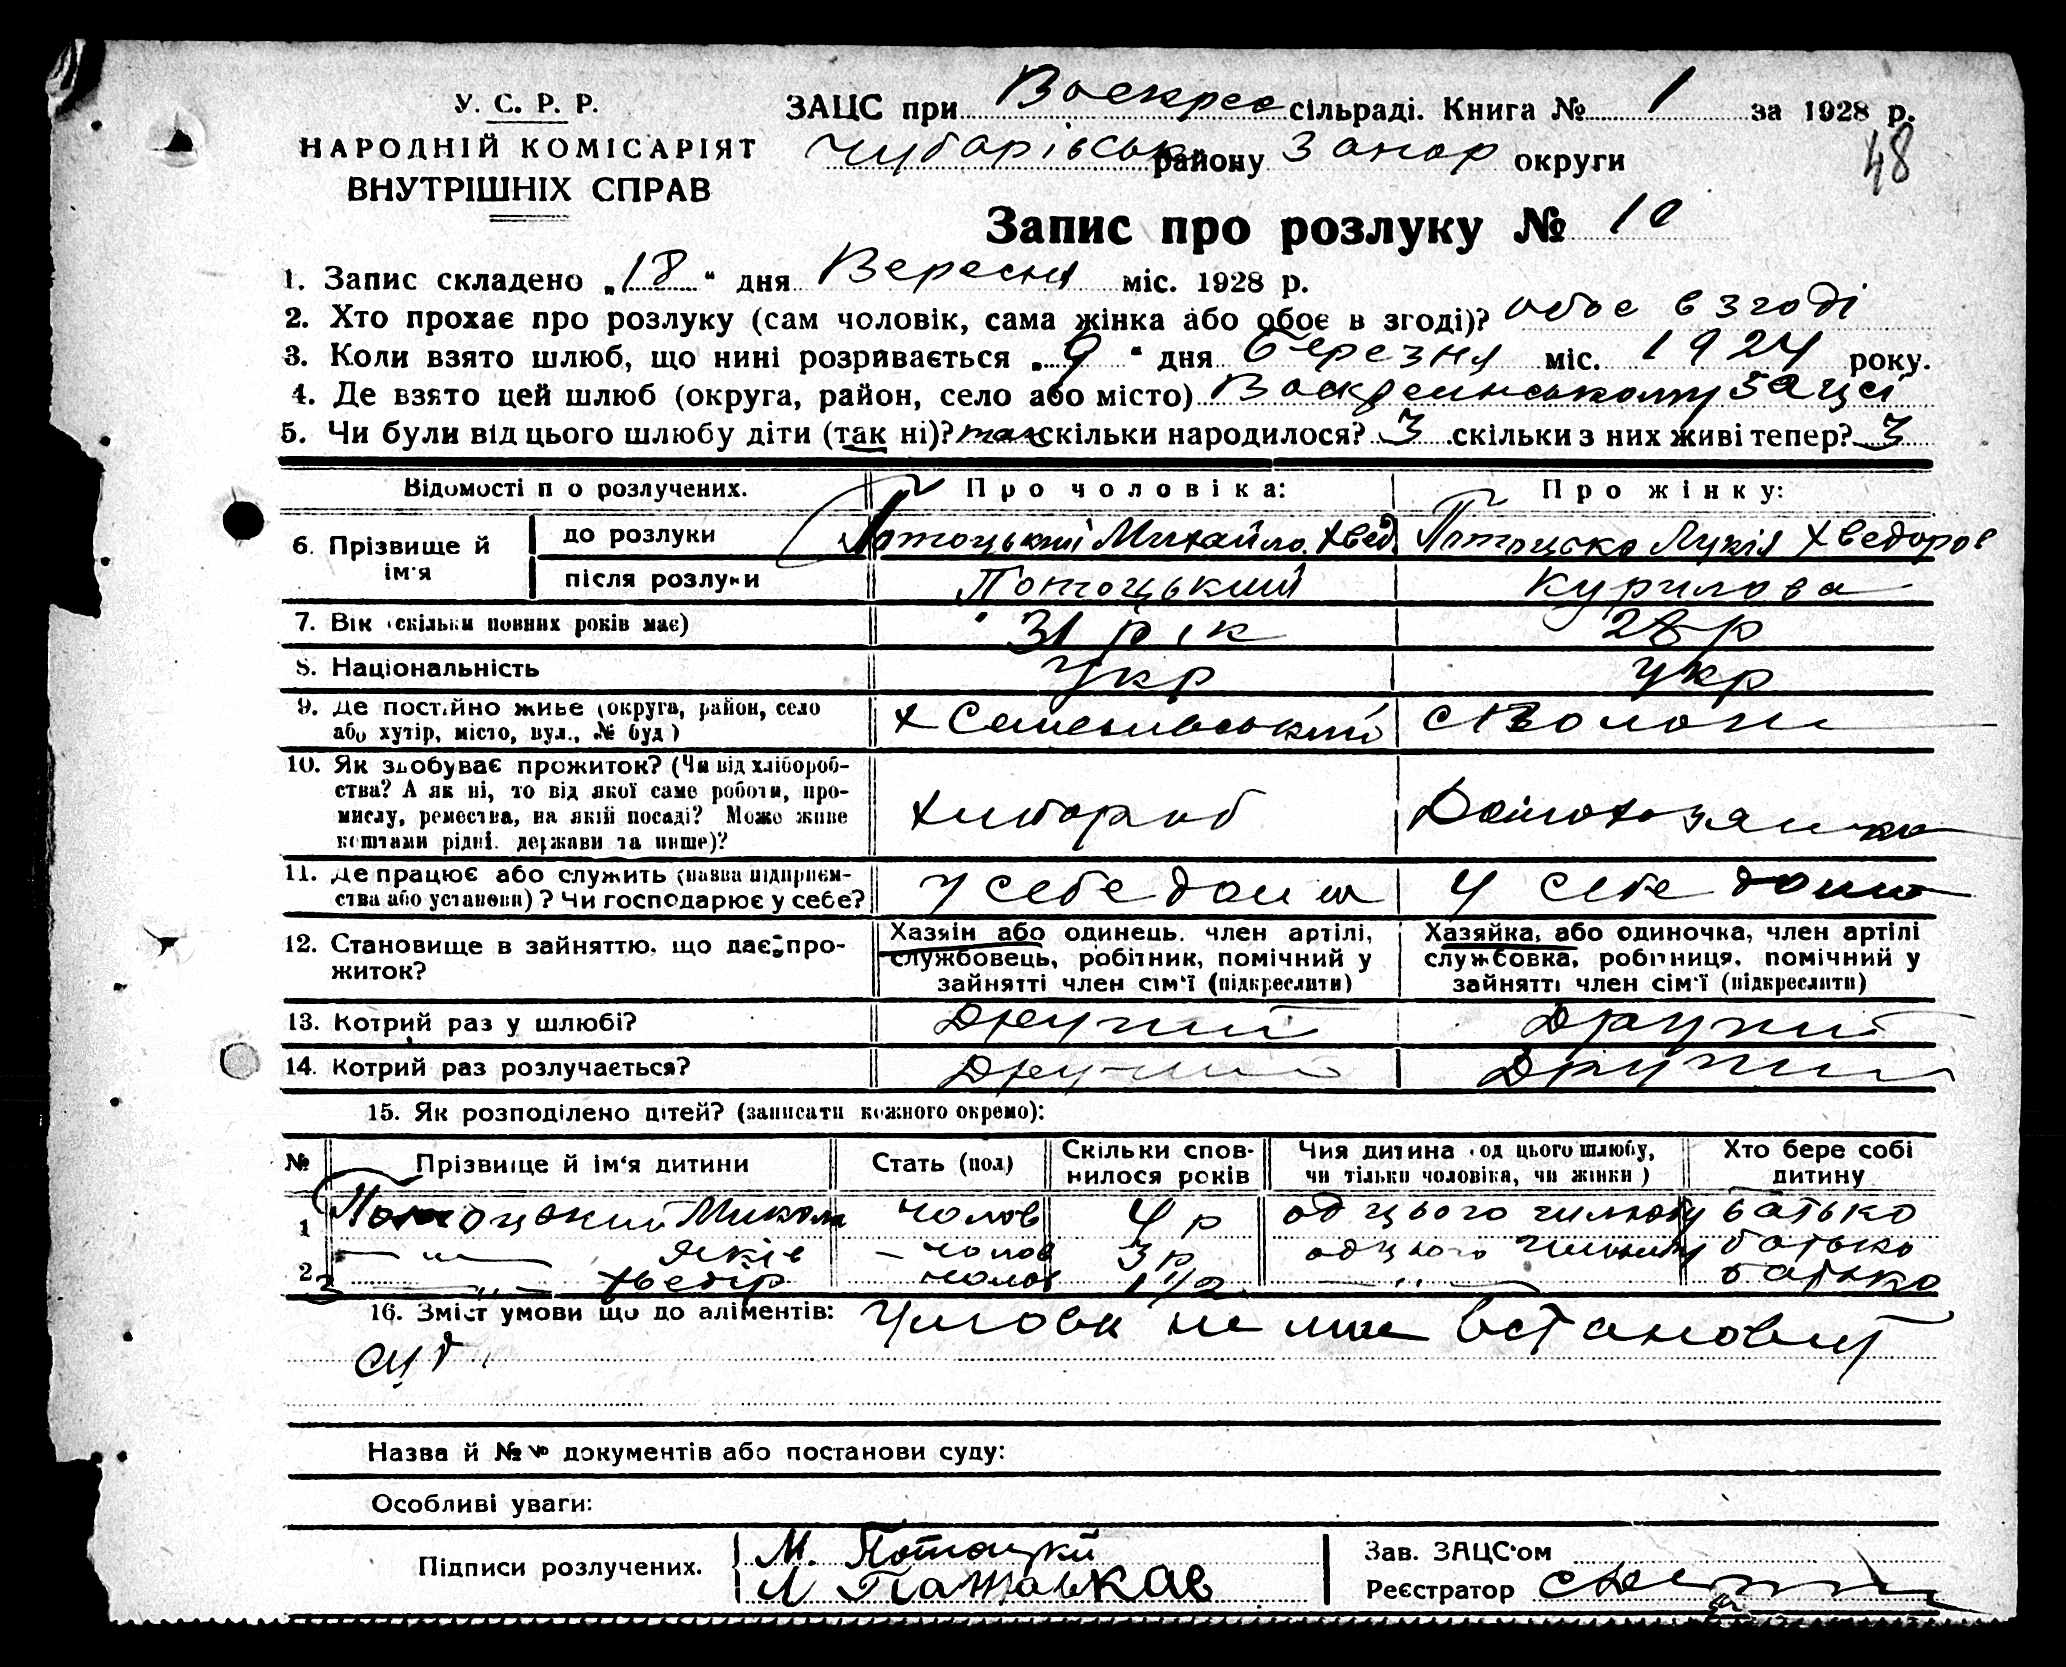 У. С. Р. Р.
НАРОДНІЙ КОМІСАРІЯТ
ВНУТРІШНІХ СПРАВ
ЗАЦС при Воскрес сільраді. Книга № 1 за 1928 р.
Чубарівськ району Запор округи
48
Запис про розлуку № 10
1. Запис складено „18“ дня Вересня міс. 1928 р.
2. Хто прохає про розлуку (сам чоловік, сама жінка або обоє в згоді)? обоє в згоді
3. Коли взято шлюб, що нині розривається „9“ дня березня міс. 1924 року.
4. Де взято цей шлюб (округа, район, село або місто) Воскресинському Зацсі
5. Чи були від цього шлюбу діти (так ні)? так скільки народилося? 3 скільки з них живі тепер? 3
Відомості по розлучених. Про чоловіка: Про жінку:
6. Прізвище й ім'я до розлуки Потоцький Михайло Хвед Потоцько Лукія Хведоров
після розлуки Потоцький Курилова
7. Вік (скільки повних років має) 31 рік 28 р
8. Національність Укр Укр
9. Де постійно живе (округа, район, село або хутір, місто, вул., № буд) х Семенівський
10. Як здобуває прожиток? (Чи від хлібороб-
ства? А як ні, то від якої саме роботи, про-
мислу, ремества, на якій посаді? Може живе
коштами рідні, держави та инше)? Хлібороб Домохозяйка
11. Де працює або служить (назва підприєм-
ства або установи)? Чи господарює у себе? У себе дома У себе дома
12. Становище в зайняттю, що дає про-
житок?
Хазяїн або одинець, член артілі,
службовець, робітник, помічний у
зайнятті член сім'ї (підкреслити)
Хазяйка, або одиночка, член артілі
службовка, робітниця, помічний у
зайнятті член сім'ї (підкреслити)
13. Котрий раз у шлюбі? Другий Другий
14. Котрий раз розлучається? Другий Другий
15. Як розподілено дітей? (записати кожного окремо):
№ Прізвище й ім'я дитини Стать (пол) Скільки спов-
нилося років Чия дитина (од цього шлюбу,
чи тільки чоловіка, чи жінки) Хто бере собі
дитину
1 Потоцький Микола чолов 4 р од цього шлюбу батько
2 — „ — Яків — чолов 3 р од цього шлюбу батько
3 — „ — Хведір чолов 1 1/2 — „ — батько
16. Зміст умови що до аліментів: Умови не має встановит
суд.
Назва й №№ документів або постанови суду:
Особливі уваги:
Підписи розлучених. М. Потоцкй
Л
Зав. ЗАЦС'ом
Реєстратор